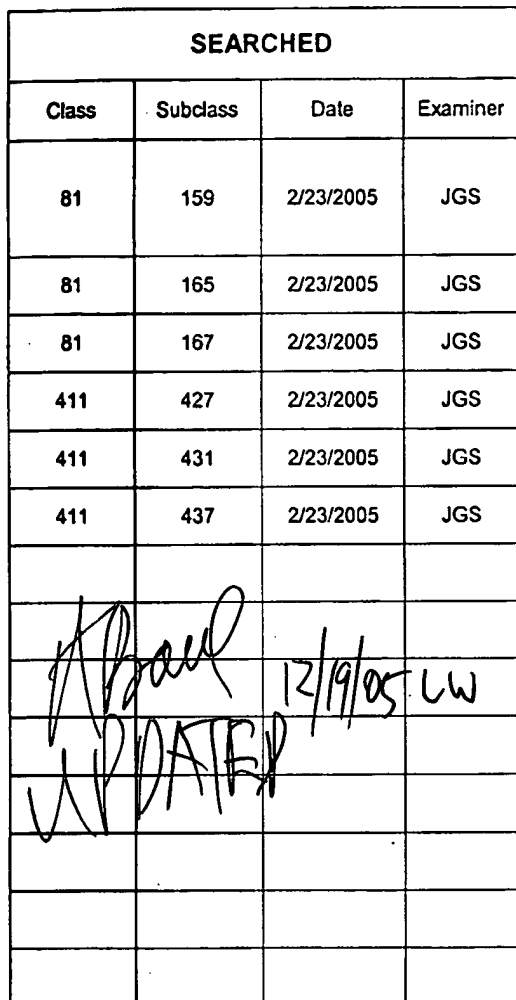 SEARCHED
Class Subclass Date Examiner
81 159 2/23/2005 JGS
81 165 2/23/2005 JGS
81 167 2/23/2005 JGS
411 427 2/23/2005 JGS
411 431 2/23/2005 JGS
411 437 2/23/2005 JGS
12/19/05 LW
UPDATED